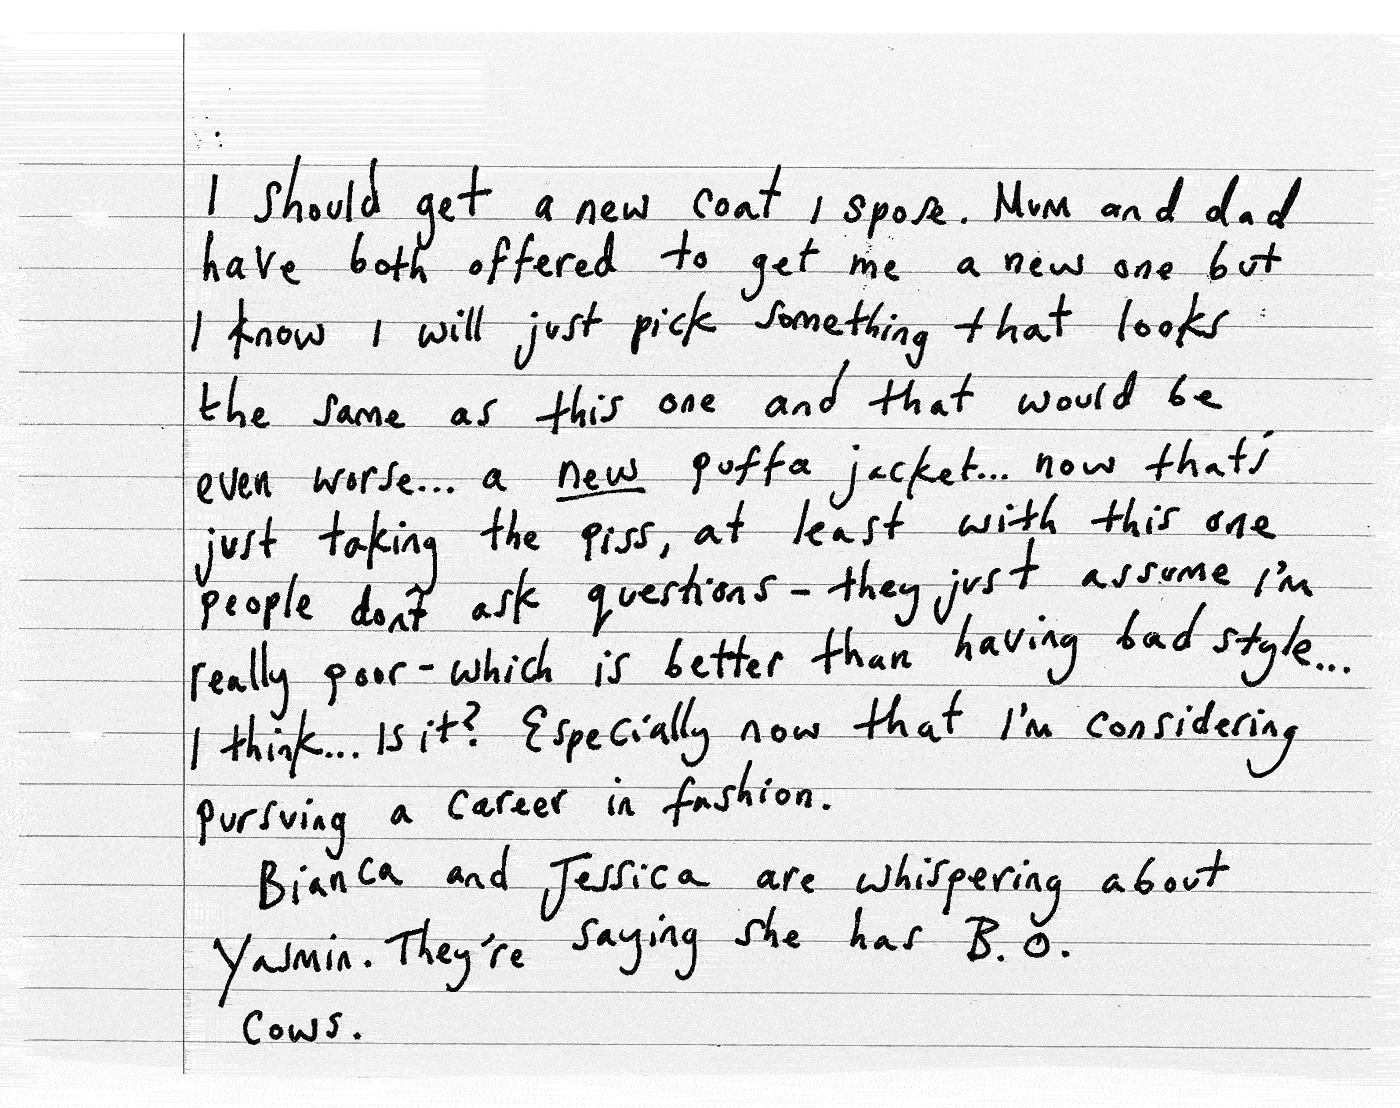 I should get a new coat I spose. Mum and dad
have both offered to get me a new one but
I know I will just pick something that looks
the same as this one and that would be
even worse... a new puffa jacket... now that's
just taking the piss, at least with this one
people don't ask questions - they just assume I'm
really poor - which is better than having bad style...
I think... Is it? Especially now that I'm considering
pursuing a career in fashion.
Bianca and Jessica are whispering about
Yasmin. They're saying she has B.O.
Cows.